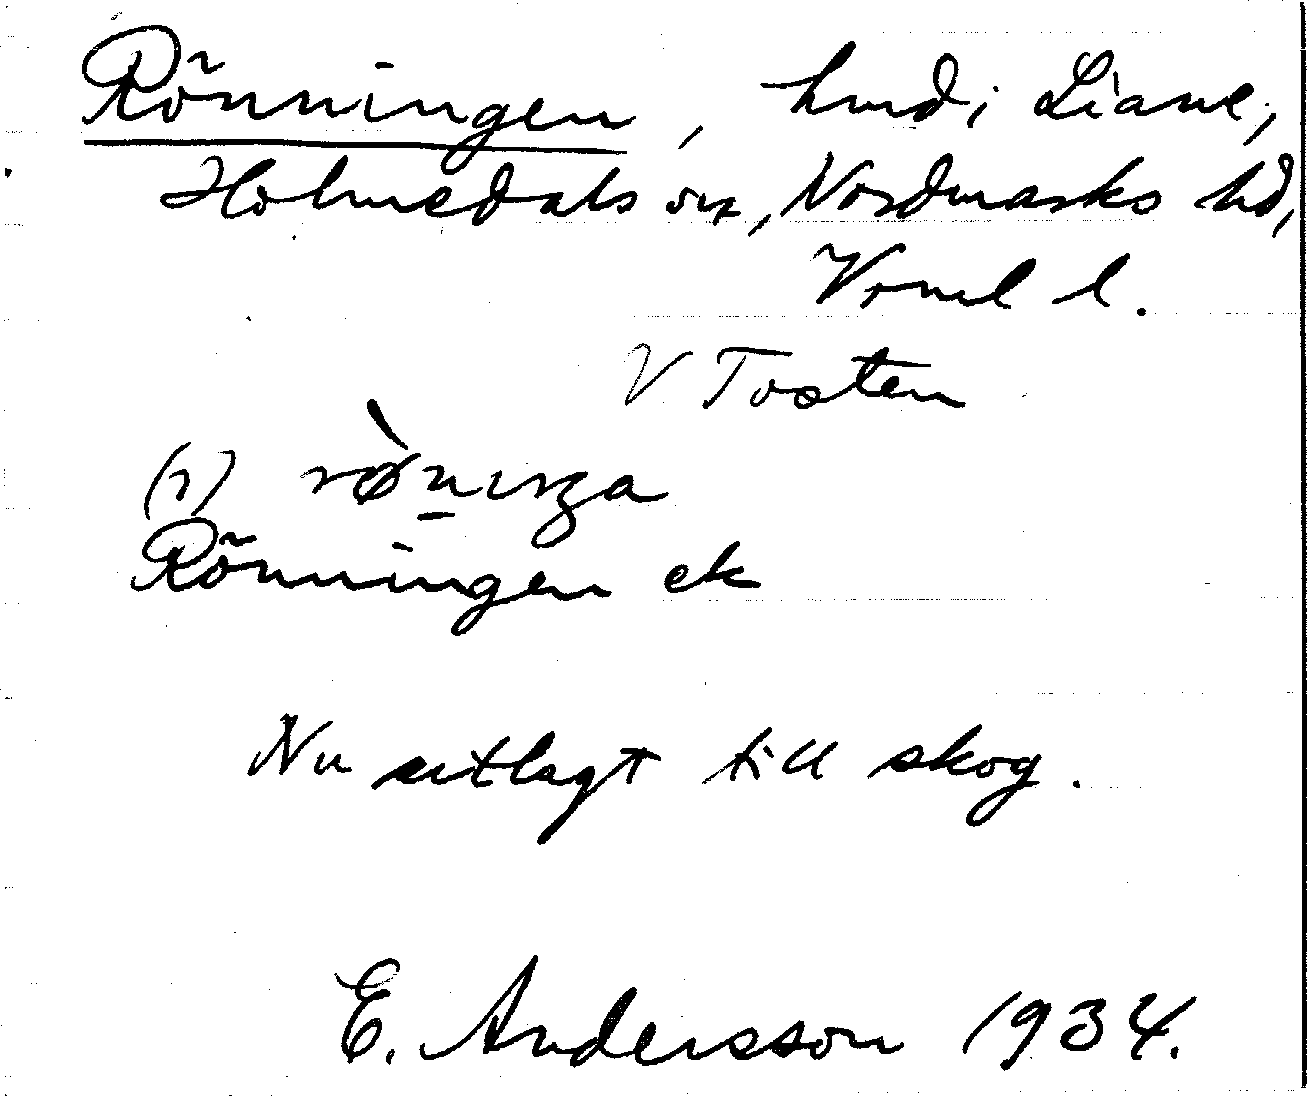 Rönningen, lund i Liane,
Holmedals sn, Nordmarks hd,
Vrml l.
V Tosten
(i) rø̀nıŋa
Rönningen ek
Nu utlagt till skog.
E. Andersson 1934.